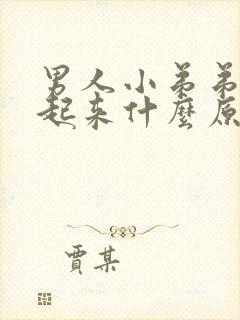 男人小弟弟
起来什麼原
賈某